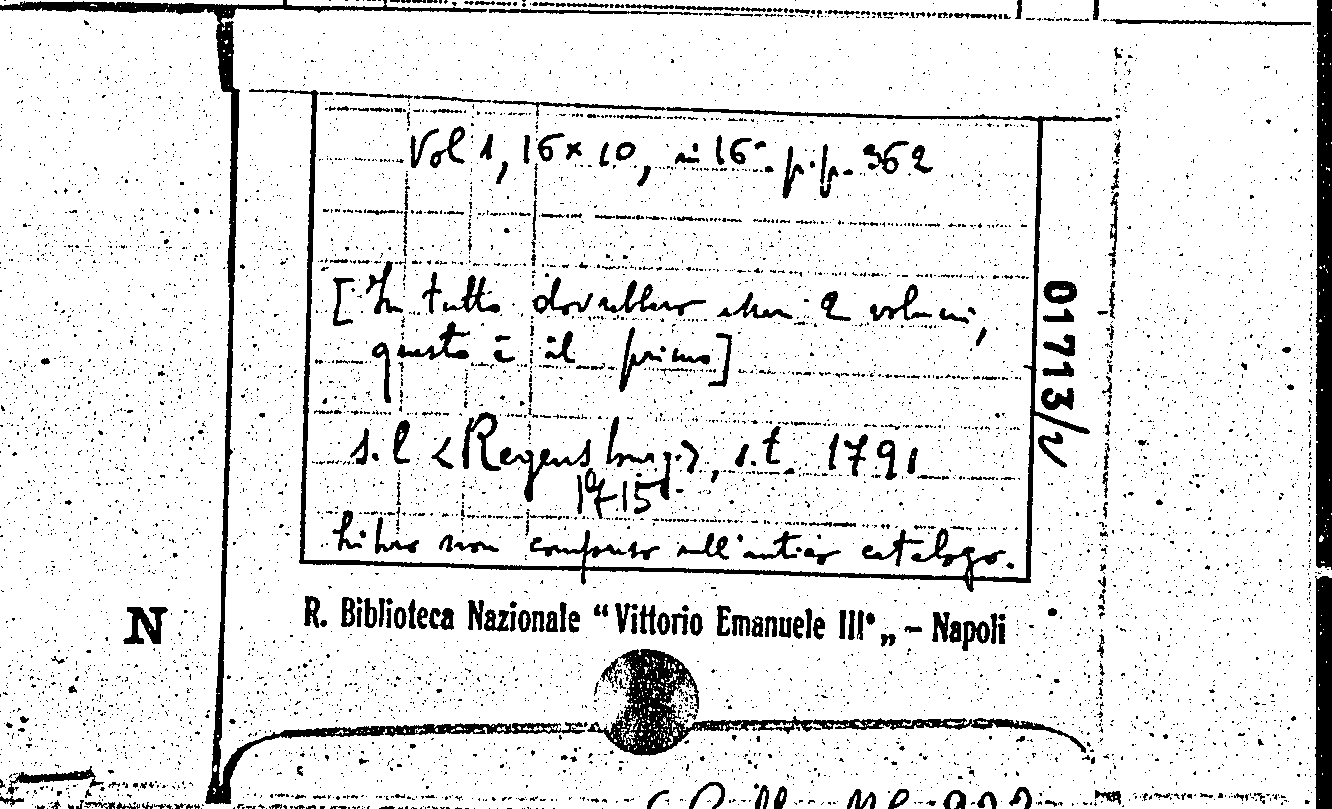 Vol 1, 16 x 10, in 16°. pp. 362
[In tutto dovrebbero essere 2 volumi,
questo è il primo]
s.l <Regensburg>, s.t. 1791
1715
Libro non compreso nell'antico catalogo.
01713/v
N
R. Biblioteca Nazionale “Vittorio Emanuele III° „ – Napoli